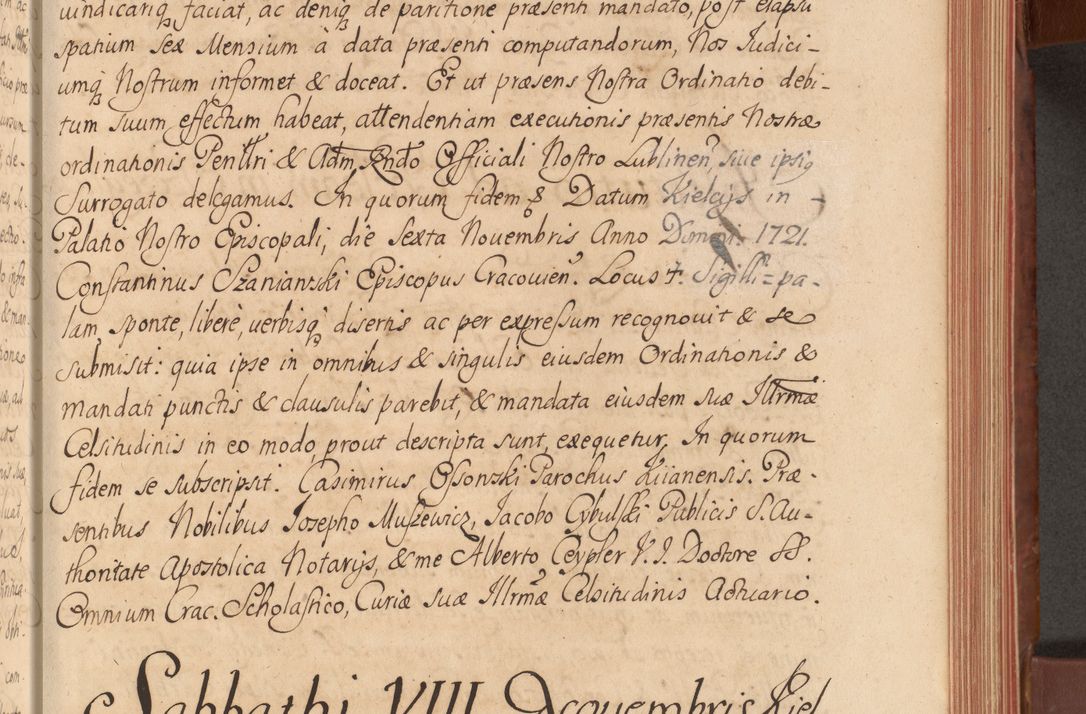 uindicariq faciat, ac deniq de paritione præsenti mandato, post elapsu
spatium sex Mensium à data præsenti computandorum, Nos Iudici-
umq Nostrum informet & doceat. Et ut præsens Nostra Ordinatio debi-
tum suum effectum habeat, attendentiam executionis præsentis Nostræ
ordinationis Penltri & Adm Rndo Officiali Nostro Lublinen, siue ipsiq
Surrogato delegamus. In quorum fidem & Datum Kielcijs in -
Palatio Nostro Episcopali, die sexta Nouembris Anno Domini 1721.
Constantinus Szaniawski Episcopus Cracouien. Locus +. Sigilli = pa-
lam, sponte, libere, uerbisq disertis ac per expressum recognouit & se
submisit: quia ipse in omnibus & singulis eiusdem Ordinationis &
mandati punctis & clausulis parebit, & mandata eiusdem suæ Illrmæ
Celsitudinis in eo modo, prout descripta sunt, exequetur, In quorum
fidem se subscripsit. Casimirus Ossowski Parochus Kiianensis. Præ-
sentibus Nobilibus Iosepho Muszewicz, Jacobo Cybulski Publicis S. Au-
thoritate Apostolica Notarijs, & me Alberto Ceypler V. I. Doctore SS.
Omnium Crac. Scholastico, Curiæ suæ Illrmæ Celsitudinis Actuario.
Sabbathi VIII Decembris Kiel